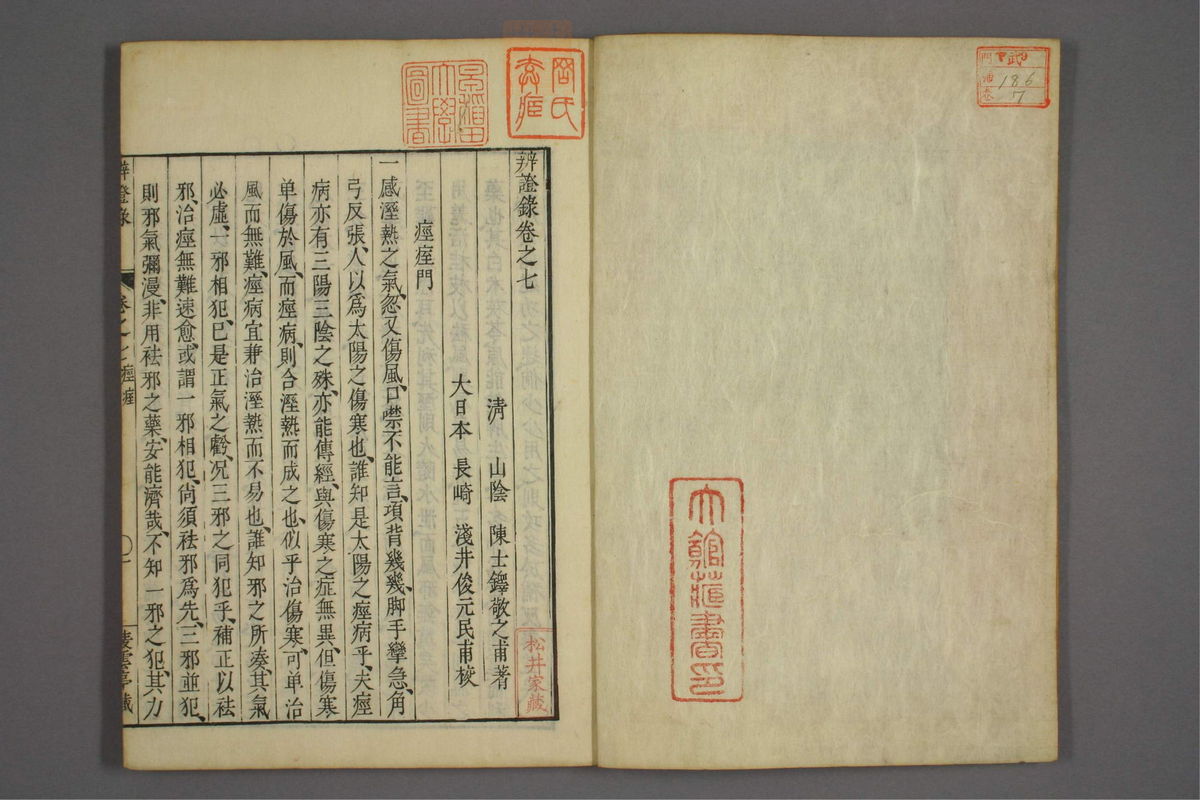 186
7
大館藏書印
早稲田大學圖書
辨證錄卷之七
清 山陰 陳士鐸敬之甫著
大日本 長崎 淺井俊元民甫校
松井家藏
痙痓門
一感溼熱之氣、忽又傷風、口噤不能言、項背幾幾、脚手攣急、角
弓反張、人以爲太陽之傷寒也、誰知是太陽之痙病乎、夫痙
病亦有三陽三陰之殊、亦能傳經、與傷寒之症無異、但傷寒
单傷於風、而痙病則合溼熱而成之也、似乎治傷寒、可单治
風而無難、痙病宜兼治溼熱而不易也、誰知邪之所凑、其氣
必虛、一邪相犯、已是正氣之虧、况三邪之同犯乎、補正以祛
邪、治痙無難速愈、或謂一邪相犯、尙須祛邪爲先、三邪並犯、
則邪氣彌漫、非用祛邪之藥、安能濟哉、不知一邪之犯、其力
辨證錄 卷之七 痙痓 一